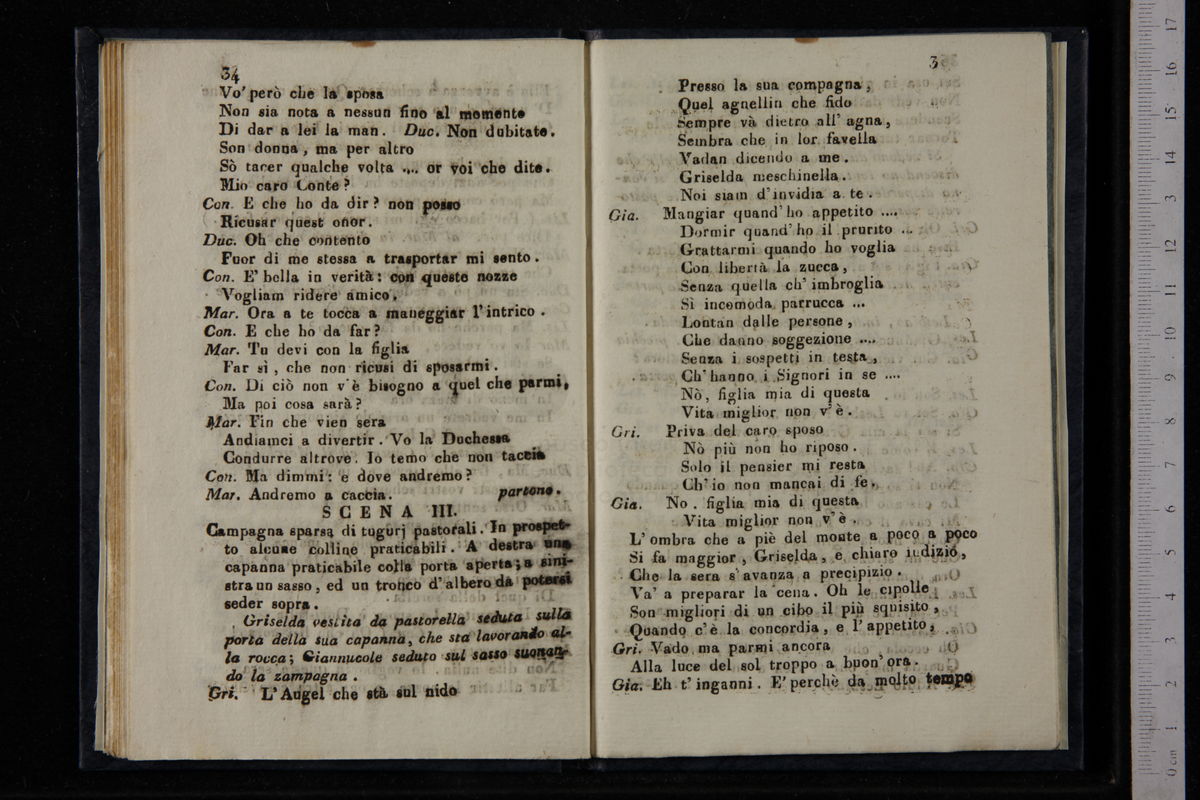 34
Vo' però che la sposa
Non sia nota a nessun fino al momento
Di dar a lei la man. Duc. Non dubitate.
Son donna, ma per altro
Sò tacer qualche volta .... or voi che dite.
Mio caro Conte?
Con. E che ho da dir? non posso
Ricusar quest onor.
Duc. Oh che contento
Fuor di me stessa a trasportar mi sento.
Con. E' bella in verità: con queste nozze
Vogliam ridere amico.
Mar. Ora a te tocca a maneggiar l'intrico.
Con. E che ho da far?
Mar. Tu devi con la figlia
Far sì, che non ricusi di sposarmi.
Con. Di ciò non v'è bisogno a quel che parmi,
Ma poi cosa sarà?
Mar. Fin che vien sera
Andiamci a divertir. Vo la Duchessa
Condurre altrove. Io temo che non taccia
Con. Ma dimmi: e dove andremo?
Mar. Andremo a caccia. partono.
SCENA III.
Campagna sparsa di tugurj pastorali. In prospet-
to alcune colline praticabili. A destra una
capanna praticabile colla porta aperta; a sini-
stra un sasso, ed un tronco d'albero da potersi
seder sopra.
Griselda vestita da pastorella seduta sulla
porta della sua capanna, che sta lavorando al-
la rocca; Giannucole seduto sul sasso suonan-
do la zampagna.
Gri. L'Augel che stà sul nido
3
Presso la sua compagna,
Quel agnellin che fido
Sempre và dietro all' agna,
Sembra che in lor favella
Vadan dicendo a me.
Griselda meschinella.
Noi siam d'invidia a te.
Gia. Mangiar quand' ho appetito ....
Dormir quand' ho il prurito ...
Grattarmi quando ho voglia
Con libertà la zucca,
Senza quella ch' imbroglia
Sì incomoda parrucca ...
Lontan dalle persone,
Che danno soggezione ....
Senza i sospetti in testa,
Ch' hanno i Signori in se ....
Nò, figlia mia di questa
Vita miglior non v'è.
Gri. Priva del caro sposo
Nò più non ho riposo.
Solo il pensier mi resta
Ch'io non mancai di fe.
Gia. No. figlia mia di questa
Vita miglior non v'è.
L'ombra che a piè del monte a poco a poco
Si fa maggior, Griselda, è chiaro indizio,
Che la sera s'avanza a precipizio.
Va' a preparar la cena. Oh le cipolle
Son migliori di un cibo il più squisito,
Quando c'è la concordia, e l'appetito,
Gri. Vado, ma parmi ancora
Alla luce del sol troppo a buon' ora.
Gia. Eh t'inganni. E' perchè da molto tempo